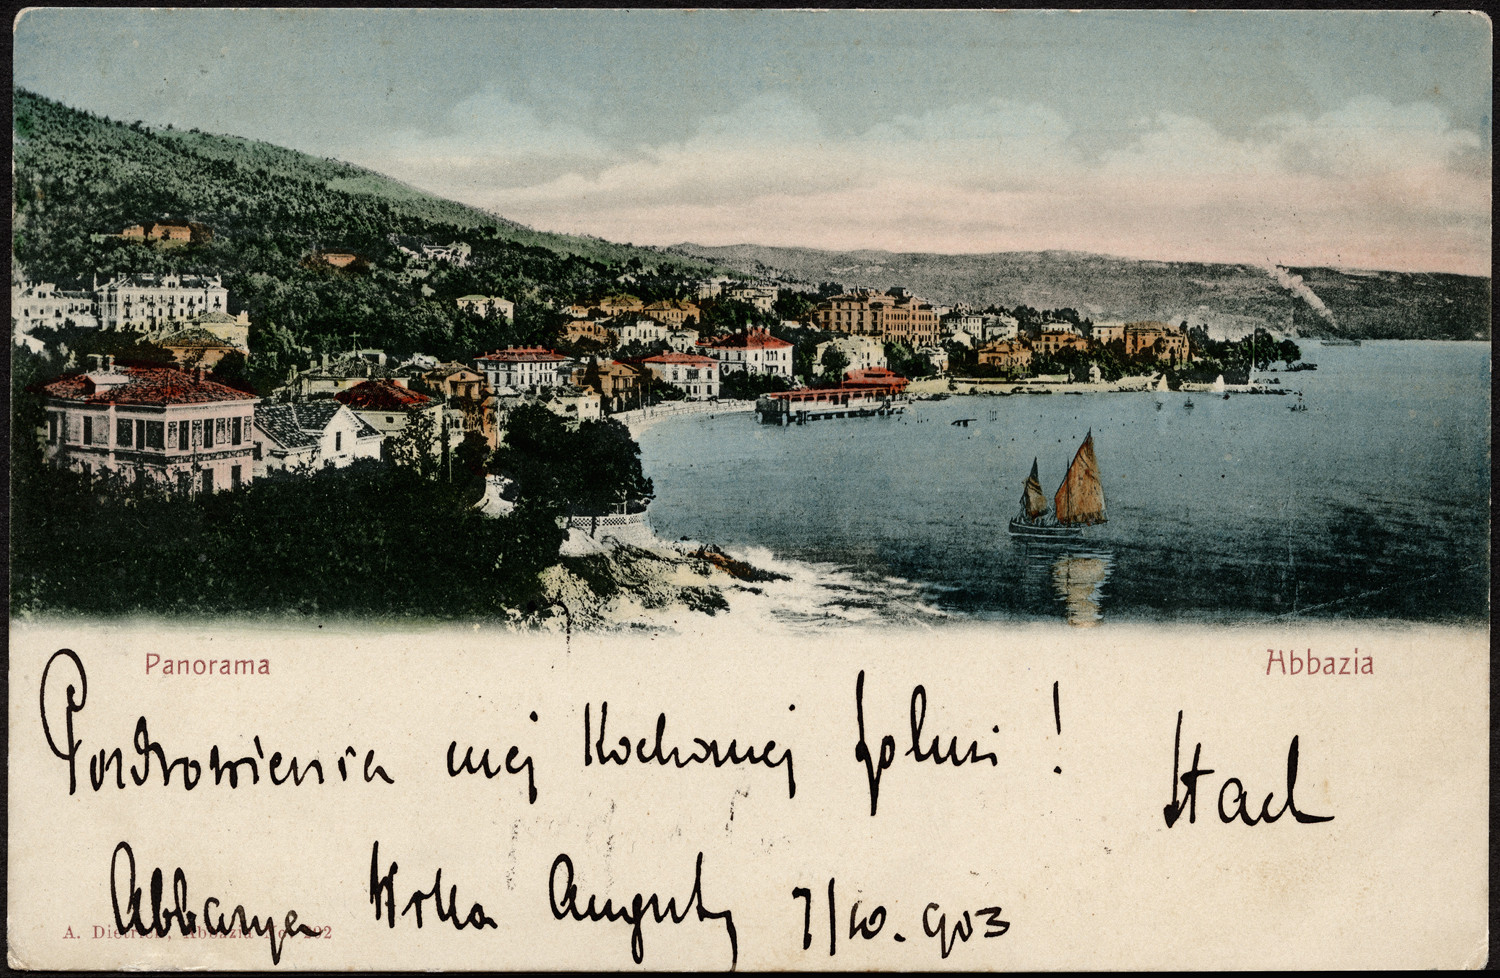 Panorama
Abbazia
Pozdrowienia mej Kochanej
Stach
Abbazya Willa Augusty 7/10. 903
A. Dietrich, Abbazia No 202